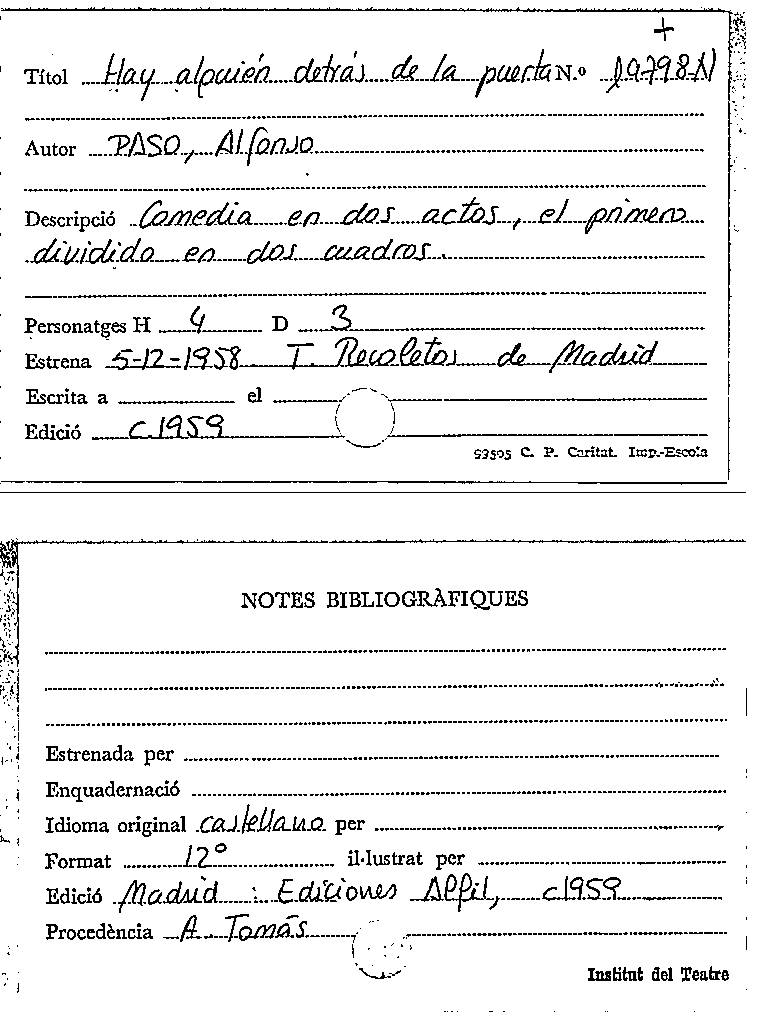 +
Títol Hay alguién detrás de la puerta N.º 19.798-N
Autor PASO, Alfonso
Descripció Comedia en dos actos, el primero
dividido en dos cuadros.
Personatges H 4 D 3
Estrena 5-12-1958 T. Recoletos de Madrid
Escrita a el
Edició c.1959
93505 C. P. Caritat. Imp.-Escola
NOTES BIBLIOGRÀFIQUES
Estrenada per
Enquadernació
Idioma original castellano per
Format 12º il·lustrat per
Edició Madrid : Ediciones Alfil, c1959
Procedència A. Tomás
Institut del Teatre